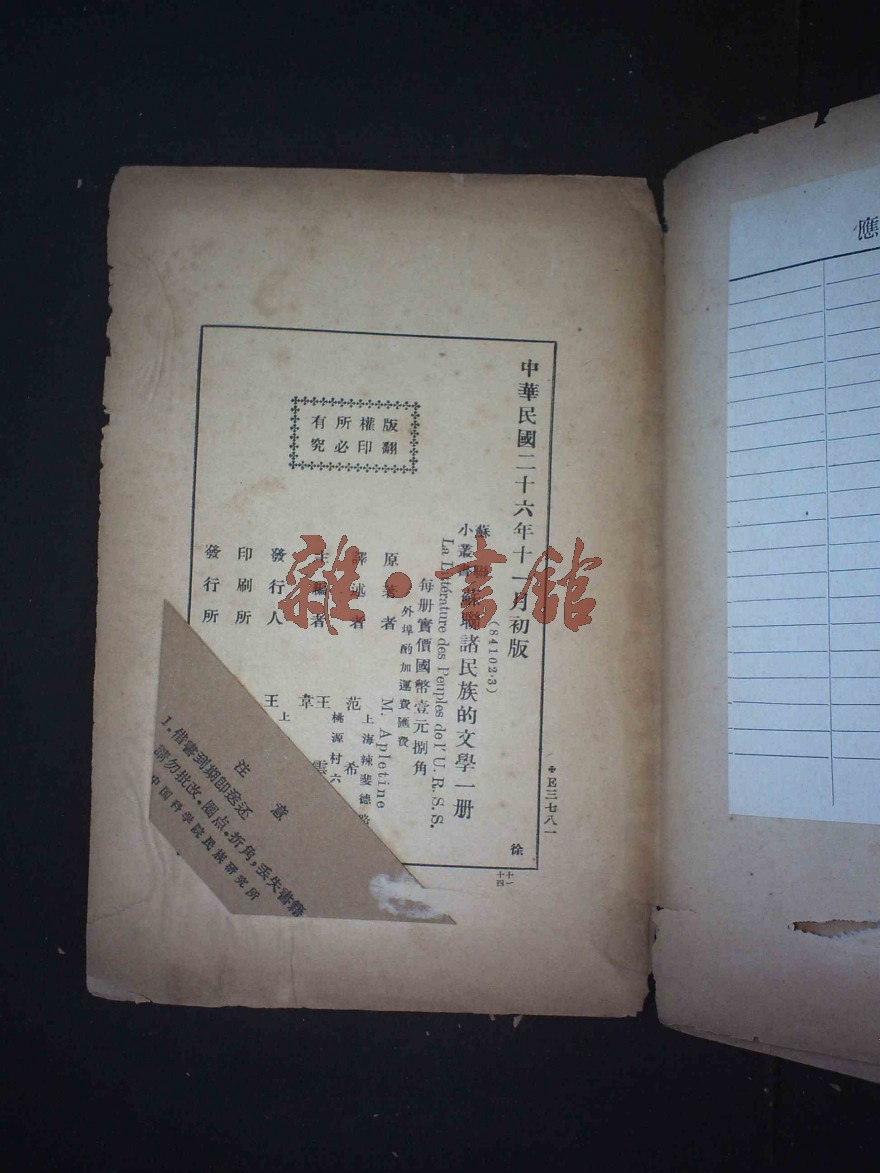 中華民國二十六年十一月初版
(84102·3)
小叢書
蘇聯諸民族的文學一册
La Littérature des Peuples de l'U. R. S. S.
每册實價國幣壹元捌角
外埠酌加運費匯費
版權所有
翻印必究
原著者 M. Apletine
譯述者 范希
上海辣斐德路
桃源村六
主編者 王雲
韋
發行人 王
上
印刷所
發行所
E三七八一
徐
十一
十四
注意
1.借書到期即送还
請勿批改.圈点.折角,丢失書籍
中国科学院民族研究所
雜·書館
應